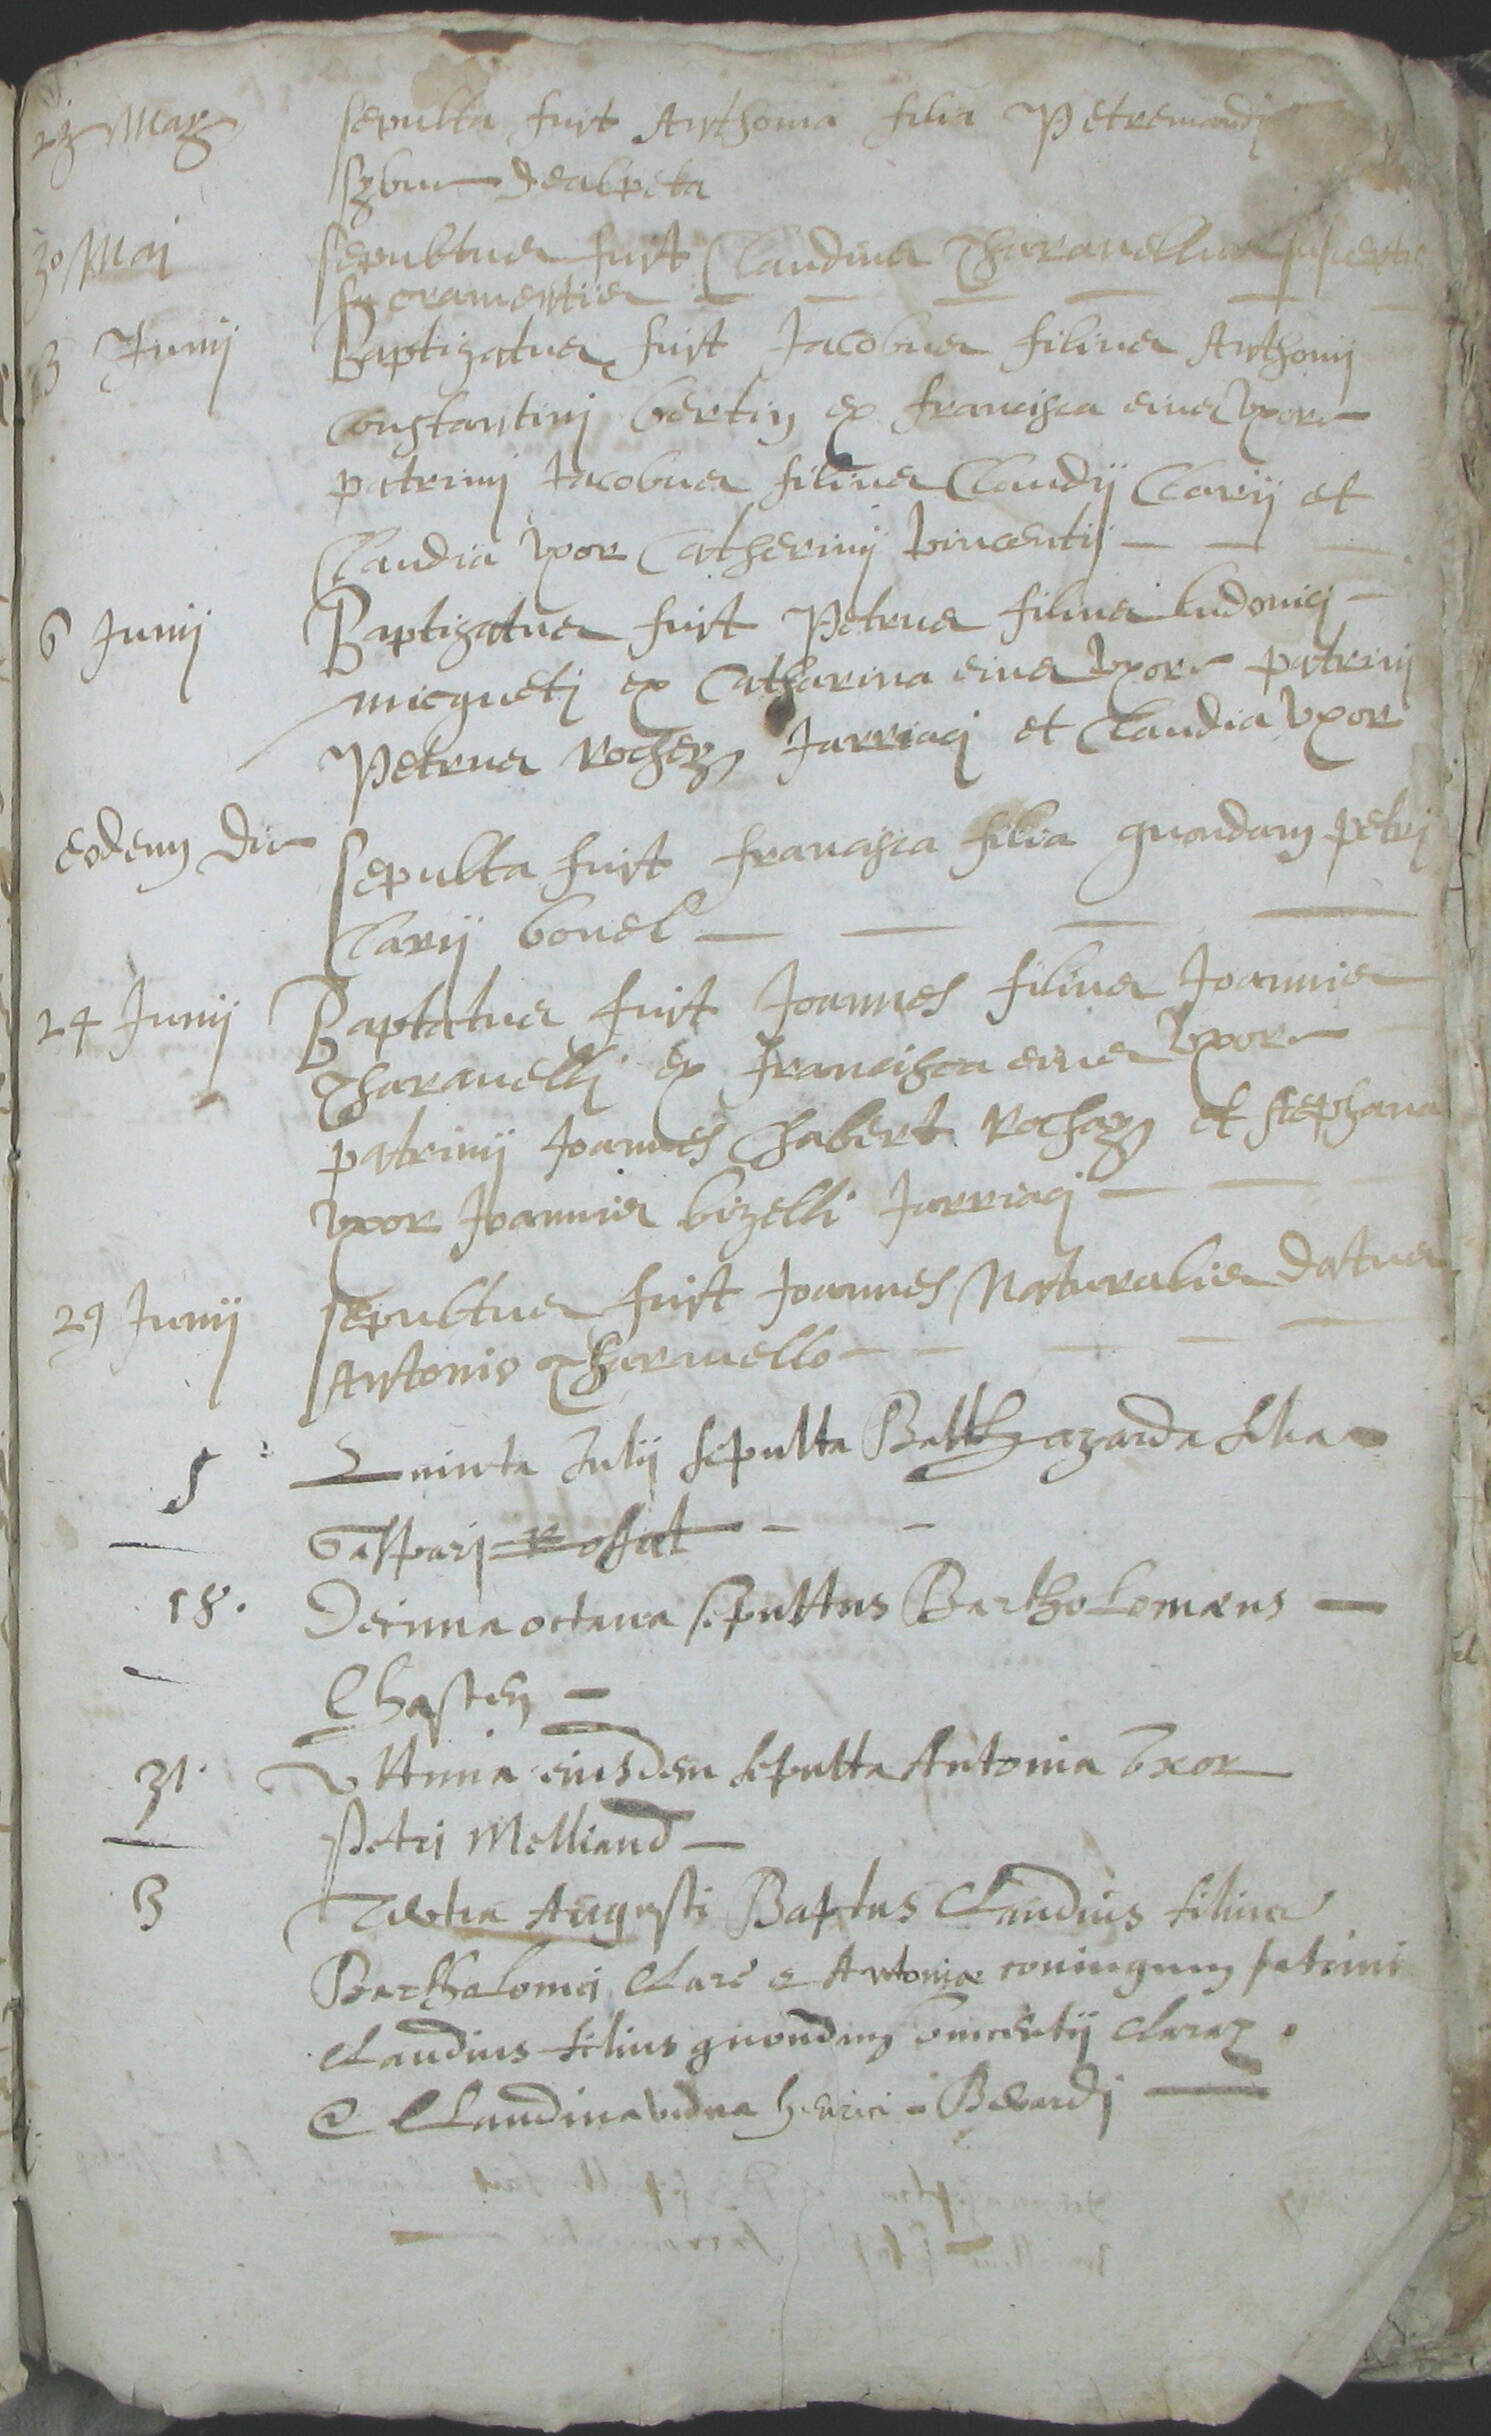 23 May sepulta fuit Anthonia filia Petremandi
30 Maij sepultus fuit Claudius Tharavellus susceptis
sacramentis
3 Junij Baptizatus fuit Jacobus filius Anthonij
Constantinj bertin ex francisca eius uxore
patrinj Jacobus filius Claudij Clarij et
Claudia uxor Catherinj vincentij
6 Junij Baptizatus fuit Petrus filius ludovicj
micquetj ex Catharina eius uxore patrinj
Petrus Rochez Jarriacj et Claudia uxor
eodem die sepulta fuit francisca filia quondam petrj
Clarij bonel
24 Junij Baptatus fuit Joannes filius Joannis
Tharavellj ex francisca eius uxore
patrinij Joannes Chabert Rochaz et stephana
uxor Joannis bizelli Jarriacj
29 Junij sepultus fuit Joannes Naturalis datus
Antonio Tharavello
5 Quinta Julij sepulta Balthazarda filia
Gasparj Rossat
18. Decima octava sepultus Bartholomæus
Chasten
31. Ultima eiusdem sepulta Antonia Uxor
Petri Melliand
3 Tertia Augusti Baptus Claudius filius
Bartholomei Clare & Antoniæ coniugum patrini
Claudius filius quondam vincentij Claraz.
& Claudina vidua henrici Berardj